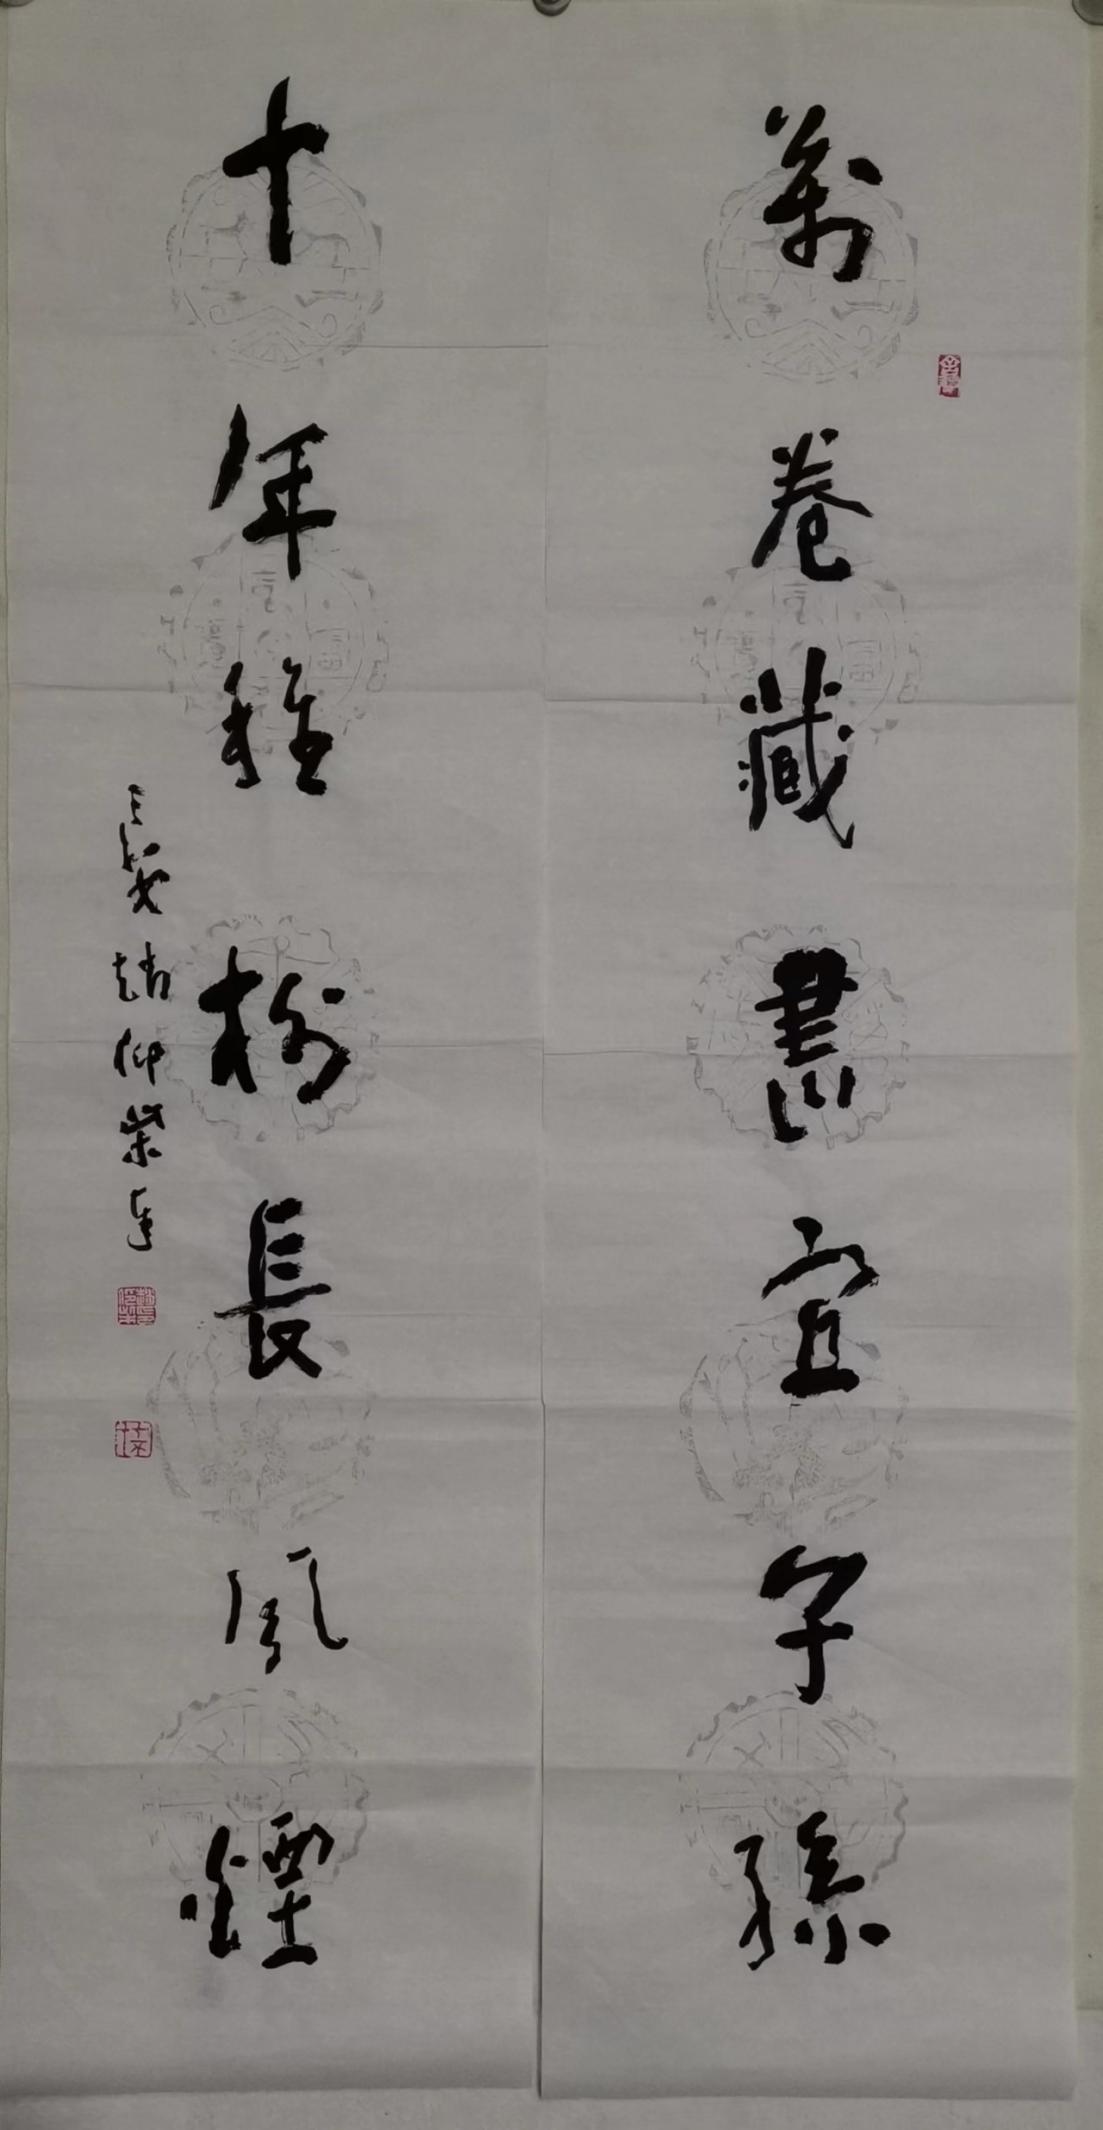 萬卷藏書宜子孫
十年種樹長風煙
長安趙仰榮書